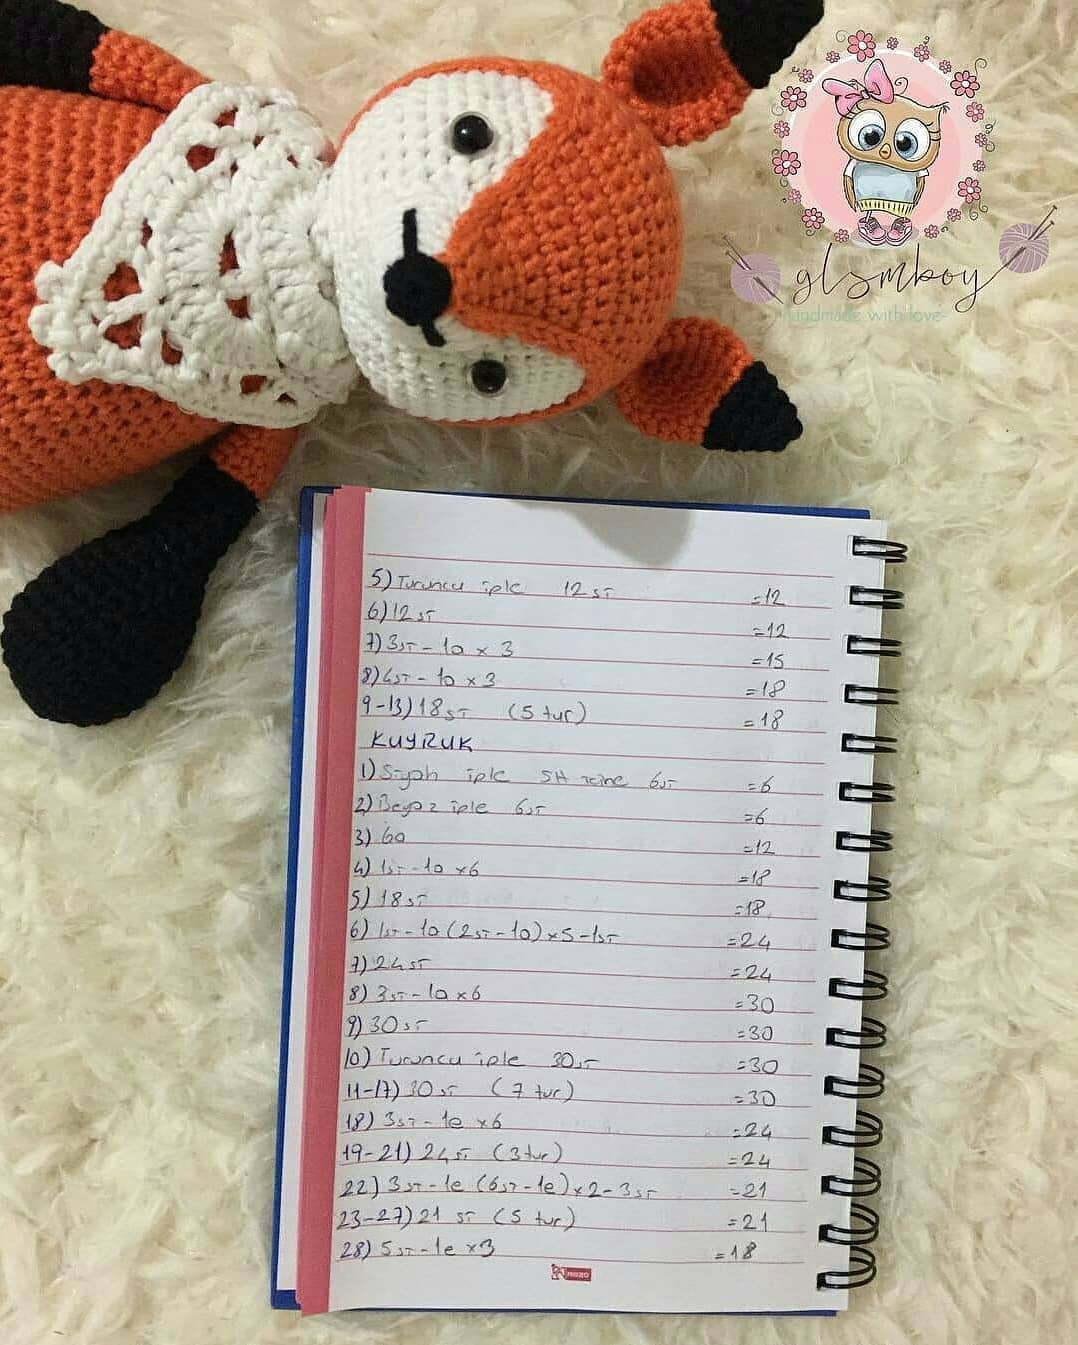 glsmboy
handmade with love
5) Turuncu iple 12 sı =12
6) 12 sı =12
7) 3sı - 1a x 3 =15
8) 4sı - 1a x 3 =18
9-13) 18sı (5 tur) =18
KUYRUK
1) Siyah iple SH içine 6sı =6
2) Beyaz iple 6sı =6
3) 6a =12
4) 1sı - 1a x6 =18
5) 18sı =18
6) 1sı - 1a (2sı - 1a) x5 - 1sı =24
7) 24sı =24
8) 3sı - 1a x6 =30
9) 30sı =30
10) Turuncu iple 30sı =30
11-17) 30sı (7 tur) =30
18) 3sı - 1e x6 =24
19-21) 24sı (3 tur) =24
22) 3sı - 1e (6sı - 1e) x 2 - 3sı =21
23-27) 21 sı (5 tur) =21
28) 5sı - 1e x3 =18